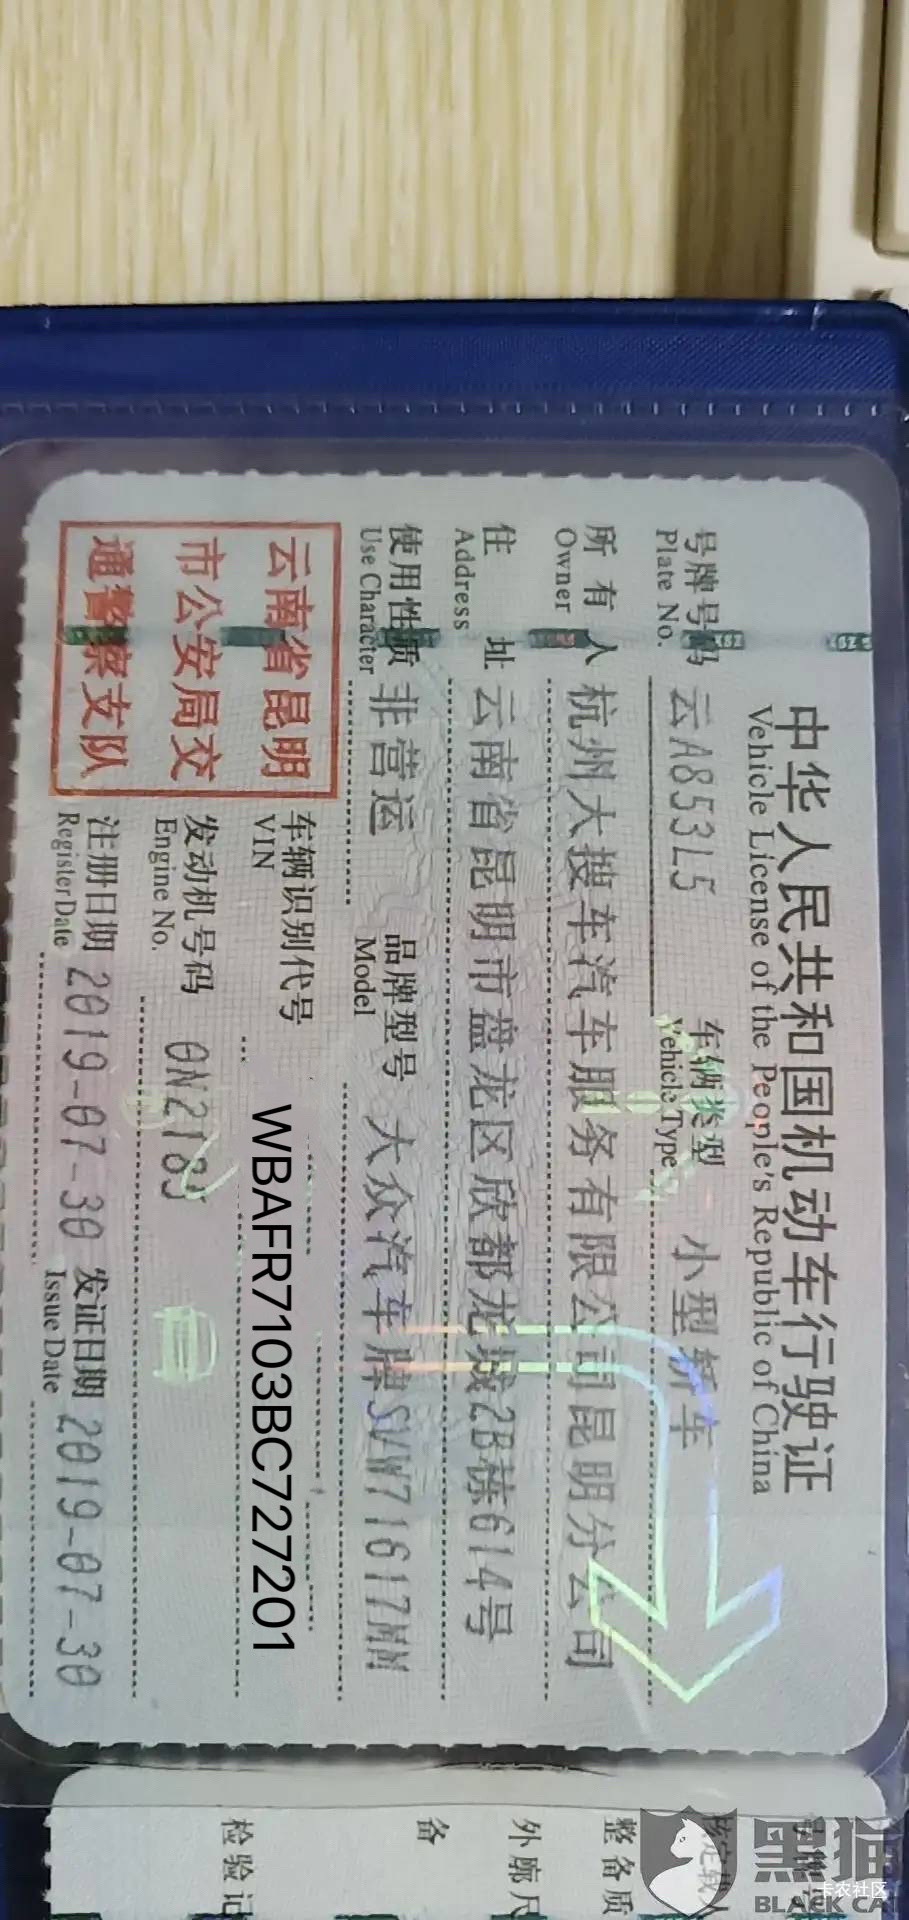 中华人民共和国机动车行驶证
Vehicle License of the People's Republic of China
号牌号码 云A853L5 车辆类型 小型轿车
Plate No. Vehicle Type
所有人 杭州大搜车汽车服务有限公司昆明分公司
Owner
住址 云南省昆明市盘龙区欣都龙城2B栋614号
Address
使用性质 非营运 品牌型号 大众汽车牌SVW71617MM
Use Character Model
云南省昆明
市公安局交
通警察支队
车辆识别代号 WBAFR7103BC727201
VIN
发动机号码
Engine No.
注册日期 2019-07-30 发证日期 2019-07-30
Register Date Issue Date
整备质
外廓尺
备
检验记
黑猫
BLACK CA
卡农社区